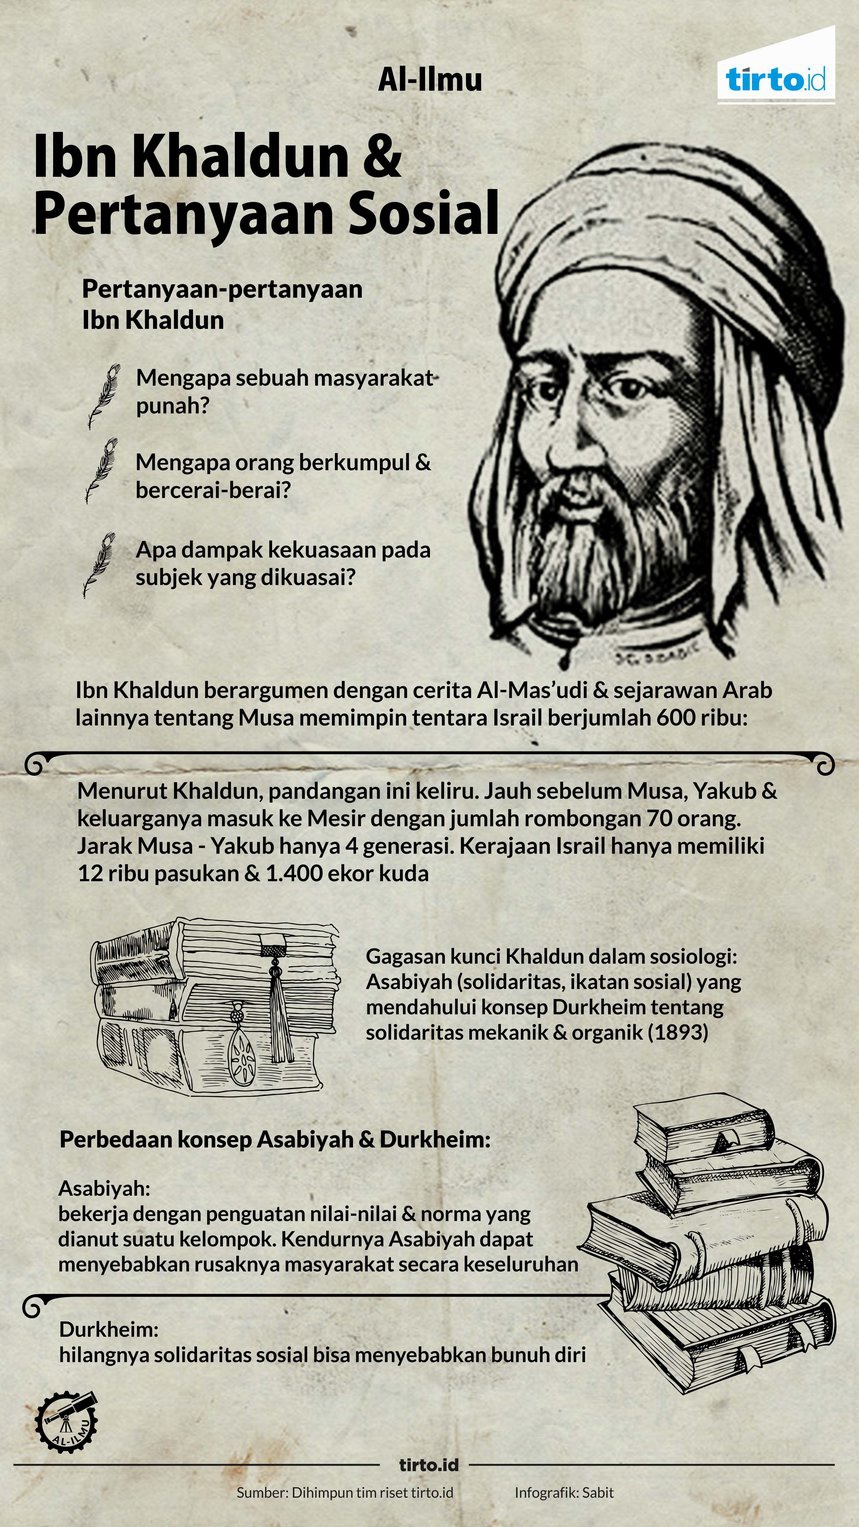 Al-Ilmu
tirto.id
Ibn Khaldun &
Pertanyaan Sosial
Pertanyaan-pertanyaan
Ibn Khaldun
Mengapa sebuah masyarakat
punah?
Mengapa orang berkumpul &
bercerai-berai?
Apa dampak kekuasaan pada
subjek yang dikuasai?
Ibn Khaldun berargumen dengan cerita Al-Mas’udi & sejarawan Arab
lainnya tentang Musa memimpin tentara Israil berjumlah 600 ribu:
Menurut Khaldun, pandangan ini keliru. Jauh sebelum Musa, Yakub &
keluarganya masuk ke Mesir dengan jumlah rombongan 70 orang.
Jarak Musa - Yakub hanya 4 generasi. Kerajaan Israil hanya memiliki
12 ribu pasukan & 1.400 ekor kuda
Gagasan kunci Khaldun dalam sosiologi:
Asabiyah (solidaritas, ikatan sosial) yang
mendahului konsep Durkheim tentang
solidaritas mekanik & organik (1893)
Perbedaan konsep Asabiyah & Durkheim:
Asabiyah:
bekerja dengan penguatan nilai-nilai & norma yang
dianut suatu kelompok. Kendurnya Asabiyah dapat
menyebabkan rusaknya masyarakat secara keseluruhan
Durkheim:
hilangnya solidaritas sosial bisa menyebabkan bunuh diri
AL-ILMU
tirto.id
Sumber: Dihimpun tim riset tirto.id
Infografik: Sabit